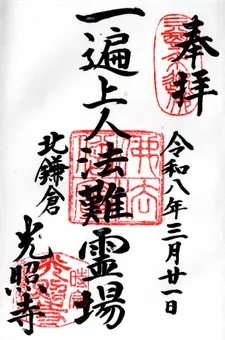 奉拝
令和八年三月廿一日
一遍上人法難霊場
北鎌倉
光照寺